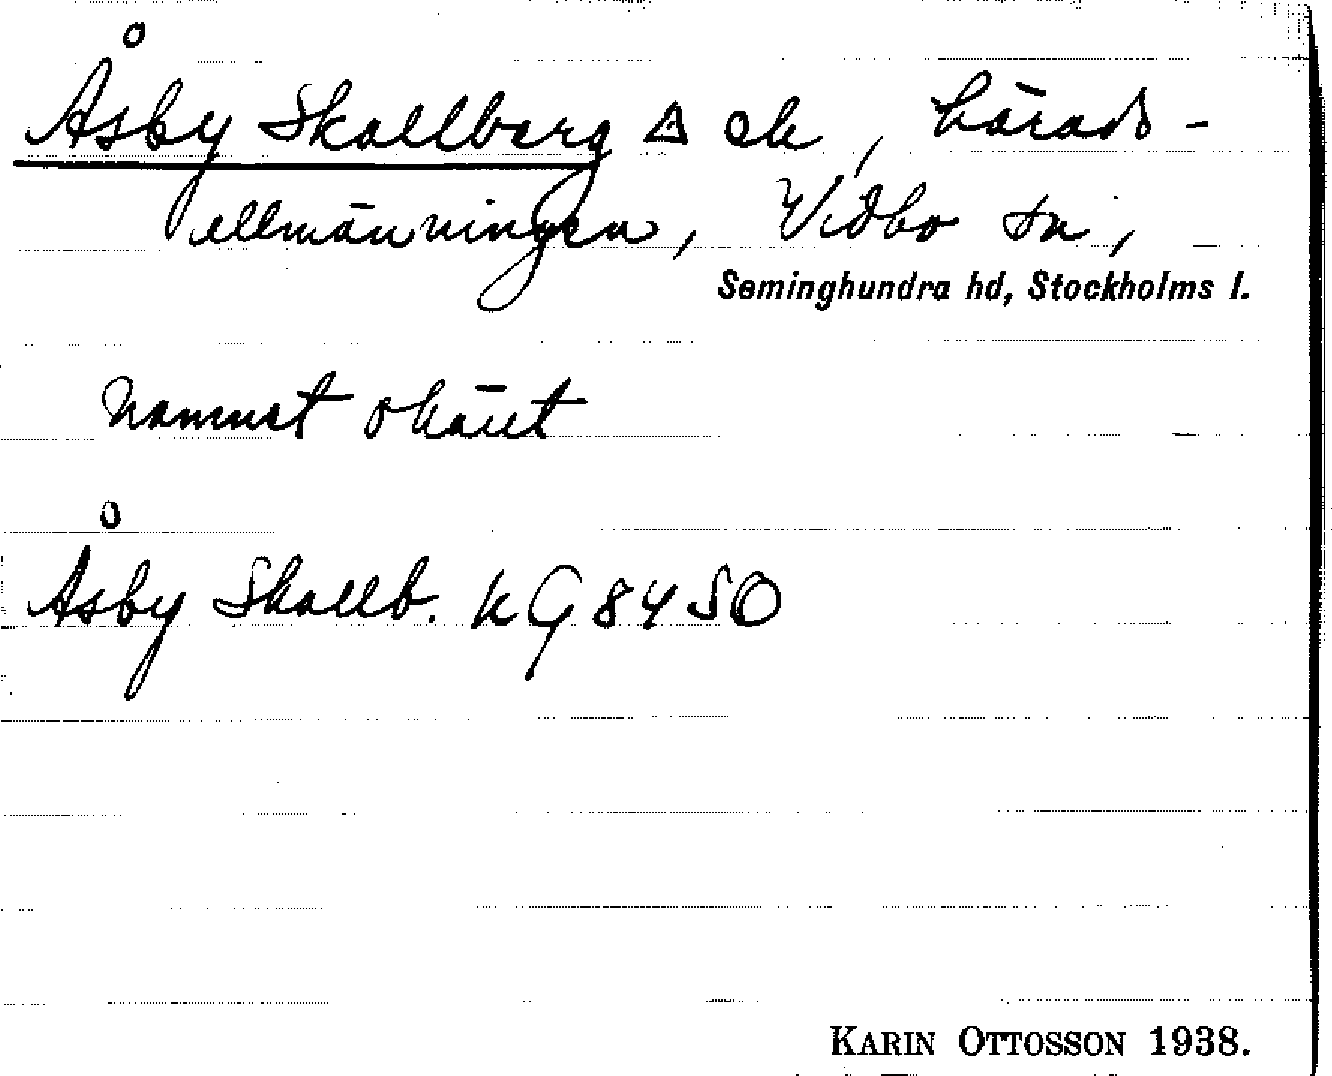 Åsby Skallberg △ ek, härads-
allmänningen, Vidbo sn,
Seminghundra hd, Stockholms l.
Namnet okänt
Åsby Skallb. kG 84 50
KARIN OTTOSSON 1938.